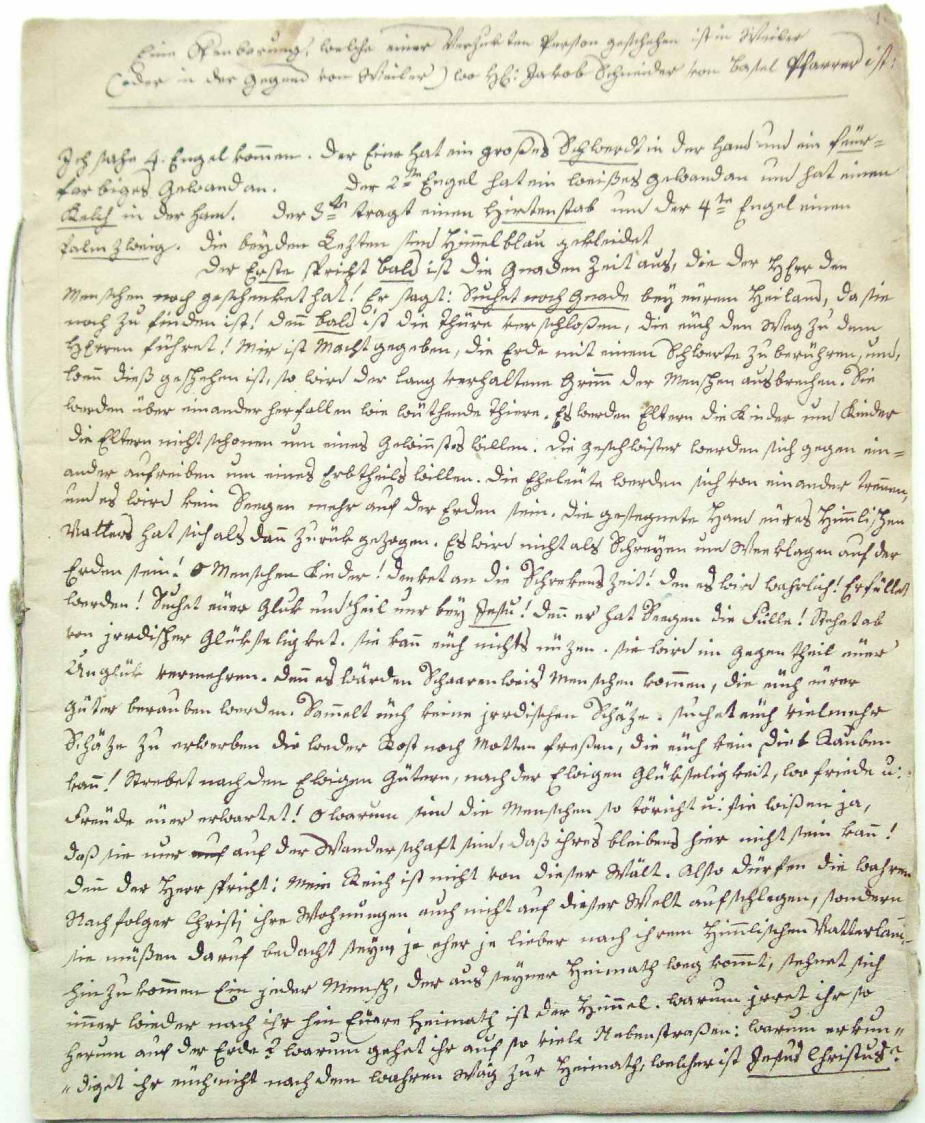 Eine Offenbarung, welche einer Verzukten Person geschehen ist in Weiler
(oder in der Gegend von Weiler) wo HE: Jakob Schneider von Basel Pfarrer ist:
Ich sahe 4. Engel kommen. Der Eine hat ein großes Schwerdt in der Hand und ein feür=
farbiges Gewand an. Der 2te Engel hat ein weißes Gewand an und hat einen
Kelch in der Hand. Der 3te tragt einen Hirtenstab und der 4te Engel einen
Palmzweig. Die beyden Lezten sind Himmelblau gekleidet
Der Erste spricht bald ist die Gnaden Zeit aus, die der HErr den
Menschen noch geschenket hat! Er sagt: Suchet noch Gnade bey eürem Heiland, da sie
noch zu finden ist! Denn bald ist die Thüre verschloßen, die eüch den Weg zu dem
HErren führet! Mir ist Macht gegeben, die Erde mit einem Schwerte zu berühren, und,
wenn dieß geschehen ist, so wird der lang verhaltene Grimm der Menschen ausbrechen. Sie
werden über einander herfallen wie wüthende Thiere. Es werden Eltern die Kinder und Kinder
die Eltern nicht schonen um eines Gewinnstes willen. Die Geschwister werden sich gegen ein=
ander aufreiben um eines Erbtheils willen. Die Eheleüte werden sich von einander trennen,
und es wird kein Seegen mehr auf der Erden sein. Die gesegnete Hand eüres Himmlischen
Vatters hat sich als dann zurük gezogen. Es wird nichts als Schreyen und Weeklagen auf der
Erden sein! O Menschen Kinder! denket an die Schrekens Zeit! den es wird wahrlich! Erfüllet
werden! Suchet eüer Glük und Heil nur bey Jesu! Denn er hat Seegen die Fülle! Stehet ab
von jrrdischer Glükseligkeit. sie kann eüch nichts nüzen. sie wird im Gegen theil eüer
Unglük vermehren. Denn es wärden Schaarenweis Menschen kommen, die eüch eürer
Güter berauben werden. Sammelt eüch keine jrrdischen Schäze. suchet eüch vielmehr
Schäze zu erwerben die weder Rost noch Motten freßen, die eüch kein Dieb Rauben
kann! Strebet nach den Ewigen Gütern, nach der Ewigen Glükseligkeit, wo friede u:
Freüde eüer erwartet! O warum sind die Menschen so töricht u: sie wißen ja,
daß sie nur auf auf der Wanderschaft sind, daß ihres bleibens hier nicht sein kann!
Denn der Herr spricht: Mein Reich ist nicht von dieser Wält. Also dürfen die wahren
Nachfolger Christi ihre Wohnungen auch nicht auf dieser Welt aufschlegen, sondern
sie müßen daruf bedacht seyn, je eher je lieber nach ihrem Himmlischen Vatterland
hin zu kommen Ein jeder Mensch, der aus seyner Heimath weg kommt, sehnet sich
immer wieder nach ihr hin Eüere Heimath ist der Himmel. warum jrret ihr so
herum auf der Erde? warum gehet ihr auf so viele Nebenstraßen: warum erkun=
=diget ihr eüch nicht nach dem wahren Wäg zur Heimath, welcher ist Jesus Christus?